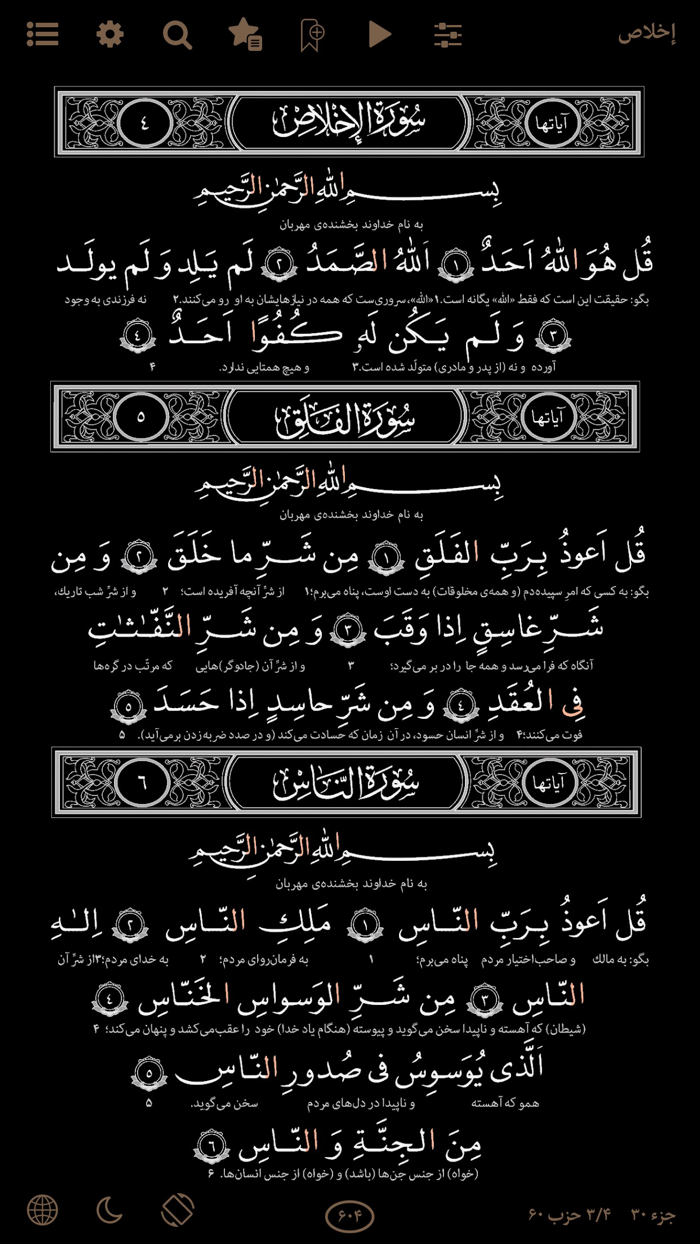 إخلاص
آیاتها سُورَةُ الإِخلاص ٤
بِسمِ اللهِ الرَّحمٰنِ الرَّحیمِ
به نام خداوند بخشنده‌ی مهربان
قُل هُوَ اللهُ اَحَدٌ ١ اَللهُ الصَّمَدُ ٢ لَم یَلِد وَ لَم یولَد
بگو: حقیقت این است که فقط «الله» یگانه است.۱ «الله»، سروری‌ست که همه در نیازهایشان به او رو می‌کنند.۲ نه فرزندی به وجود
٣ وَ لَم یَکُن لَهٗ کُفُوًا اَحَدٌ ٤
آورده و نه (از پدر و مادری) متولّد شده است.۳ و هیچ همتایی ندارد. ۴
آیاتها سُورَةُ الفَلَقِ ٥
بِسمِ اللهِ الرَّحمٰنِ الرَّحیمِ
به نام خداوند بخشنده‌ی مهربان
قُل اَعوذُ بِرَبِّ الفَلَقِ ١ مِن شَرِّ ما خَلَقَ ٢ وَ مِن
بگو: به کسی که امرِ سپیده‌دم (و همه‌ی مخلوقات) به دست اوست، پناه می‌برم؛۱ از شرِّ آنچه آفریده است؛ ۲ و از شرِّ شب تاریک،
شَرِّ غاسِقٍ اِذا وَقَبَ ٣ وَ مِن شَرِّ النَّفّٰثٰتِ
آنگاه که فرا می‌رسد و همه جا را در بر می‌گیرد؛ ۳ و از شرِّ آن (جادوگر)هایی که مرتّب در گره‌ها
فِی العُقَدِ ٤ وَ مِن شَرِّ حاسِدٍ اِذا حَسَدَ ٥
فوت می‌کنند؛۴ و از شرِّ انسان حسود، در آن زمان که حسادت می‌کند (و در صدد ضربه‌زدن برمی‌آید). ۵
آیاتها سُورَةُ النّاسِ ٦
بِسمِ اللهِ الرَّحمٰنِ الرَّحیمِ
به نام خداوند بخشنده‌ی مهربان
قُل اَعوذُ بِرَبِّ النّاسِ ١ مَلِکِ النّاسِ ٢ اِلٰهِ
بگو: به مالك و صاحب‌اختیار مردم پناه می‌برم؛ ۱ به فرمان‌روای مردم؛ ۲ به خدای مردم؛۳ از شرِّ آن
النّاسِ ٣ مِن شَرِّ الوَسواسِ الخَنّاسِ ٤
(شیطان) که آهسته و ناپیدا سخن می‌گوید و پیوسته (هنگام یاد خدا) خود را عقب می‌کشد و پنهان می‌کند؛ ۴
اَلَّذی یُوَسوِسُ فی صُدورِ النّاسِ ٥
همو که آهسته و ناپیدا در دل‌های مردم سخن می‌گوید. ۵
مِنَ الجِنَّةِ وَ النّاسِ ٦
(خواه) از جنس جن‌ها (باشد) و (خواه) از جنس انسان‌ها. ۶
جزء ۳۰ ۳/۴ حزب ۶۰ ۶۰۴